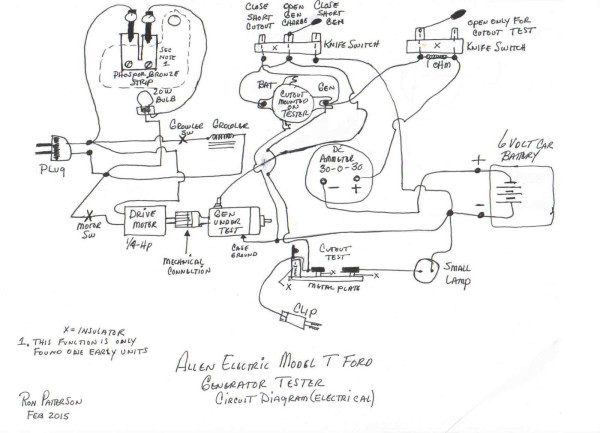 CLOSE SHORT CUTOUT
OPEN GEN CHARGE
CLOSE SHORT GEN
KNIFE SWITCH
X
OPEN ONLY FOR
CUTOUT TEST
KNIFE SWITCH
X
1 OHM
SEE
NOTE
1
PHOSPOR BRONZE
STRIP
20W
BULB
BAT
GEN
CUTOUT
MOUNTED
ON
TESTER
GROWLER
SW
GROWLER
X
PLUG
DC
AMMETER
30-0-30
- +
6 VOLT CAR
BATTERY
+
-
X
MOTOR
SW
DRIVE
MOTOR
1/4-HP
GEN
UNDER
TEST
MECHANICAL
CONNECTION
CASE
GROUND
CUTOUT
TEST
X
X
METAL PLATE
SMALL
LAMP
CLIP
X=INSULATOR
1. THIS FUNCTION IS ONLY
FOUND ONE EARLY UNITS
ALLEN ELECTRIC MODEL T FORD
GENERATOR TESTER
CIRCUIT DIAGRAM (ELECTRICAL)
RON PATTERSON
FEB 2015